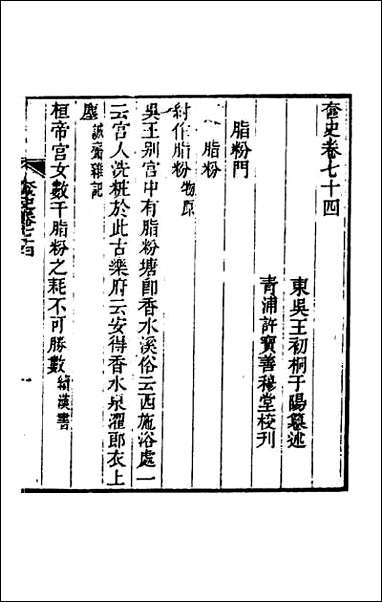 奩史卷七十四
東吳王初桐于陽纂述
青浦許寶善穆堂校刊
脂粉門
脂粉
紂作脂粉物原
吳王別宮中有脂粉塘卽香水溪俗云西施浴處一
云宮人洗粧於此古樂府云安得香水泉濯郎衣上
塵誠齋雜記
桓帝宮女數千脂粉之耗不可勝數續漢書
奩史卷七十四
一